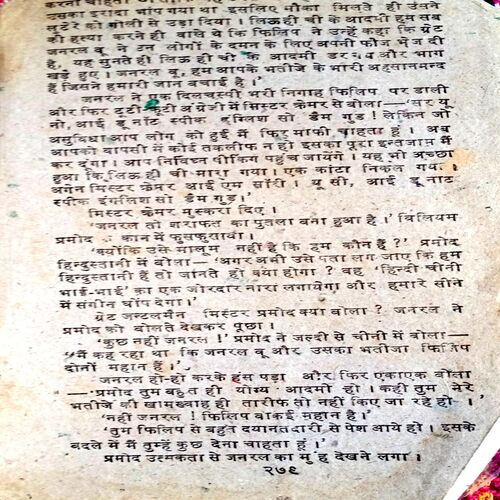 उसका इरादा भांप गया था इसलिए मौका मिलते ही उसने
लुटेरे को गोली से उड़ा दिया। लिऊ ही ची के आदमी हम सब
की हत्या करने ही वाले थे कि फिलिप ने उन्हें कहा कि ग्रेट
जनरल वू ने उन लोगों के दमन के लिए अपनी फौज भेज दी
है, यह सुनते ही लिऊ ही ची के आदमी डर गये और भाग
खड़े हुए। जनरल वू, हम आपके भतीजे के भारी अहसानमन्द
हैं जिसने हमारी जान बचाई है।'
जनरल ने एक दिलचस्पी भरी निगाह फिलिप पर डाली
और फिर टूटी-फूटी अंग्रेजी में मिस्टर क्रेमर से बोला—'सर यू
नो, आई डू नॉट स्पीक इंगलिश सो डैम गुड! लेकिन जो
असुविधा आप लोग को हुई मैं फिर माफी चाहता हूं। अब
आपको वापसी में कोई तकलीफ न हो इसका पूरा इन्तजाम मैं
कर दूंगा। आप निर्विघ्न पीकिंग पहुंच जायेंगे। यह भी अच्छा
हुआ कि लिऊ ही ची मारा गया। एक कांटा निकल गया।
अगेन मिस्टर क्रेमर आई एम सॉरी। यू सी, आई डू नाट
स्पीक इंगलिश सो डैम गुड।'
मिस्टर क्रेमर मुस्करा दिए।
'जनरल तो शराफत का पुतला बना हुआ है।' विलियम
प्रमोद के कान में फुसफुसाया।
'क्योंकि उसे मालूम नहीं है कि हम कौन हैं?' प्रमोद
हिन्दुस्तानी में बोला—'अगर अभी उसे पता लग जाए कि हम
हिन्दुस्तानी हैं तो जानते हो क्या होगा? वह 'हिन्दी चीनी
भाई-भाई' का एक जोरदार नारा लगायेगा और हमारे सीने
में संगीन घोंप देगा।'
ग्रेट जन्टलमैन मिस्टर प्रमोद क्या बोला? जनरल ने
प्रमोद को बोलते देखकर पूछा।
'कुछ नहीं जनरल!' प्रमोद ने जल्दी से चीनी में बोला—
'मैं कह रहा था कि जनरल वू और उसका भतीजा फिलिप
दोनों महान हैं।'
जनरल हो-हो करके हंस पड़ा और फिर एकाएक बोला
—'प्रमोद तुम बहुत ही योग्य आदमी हो। कहीं तुम मेरे
भतीजे की खामख्वाह ही तारीफ तो नहीं किए जा रहे हो।'
'नहीं जनरल! फिलिप वाकई महान है।'
'तुम फिलिप से बहुत दयानतदारी से पेश आये हो। इसके
बदले में मैं तुम्हें कुछ देना चाहता हूं।'
प्रमोद उत्सुकता से जनरल का मुंह देखने लगा।
२७९